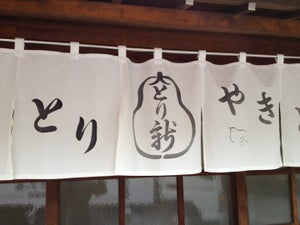 とり
とり新
やき
と